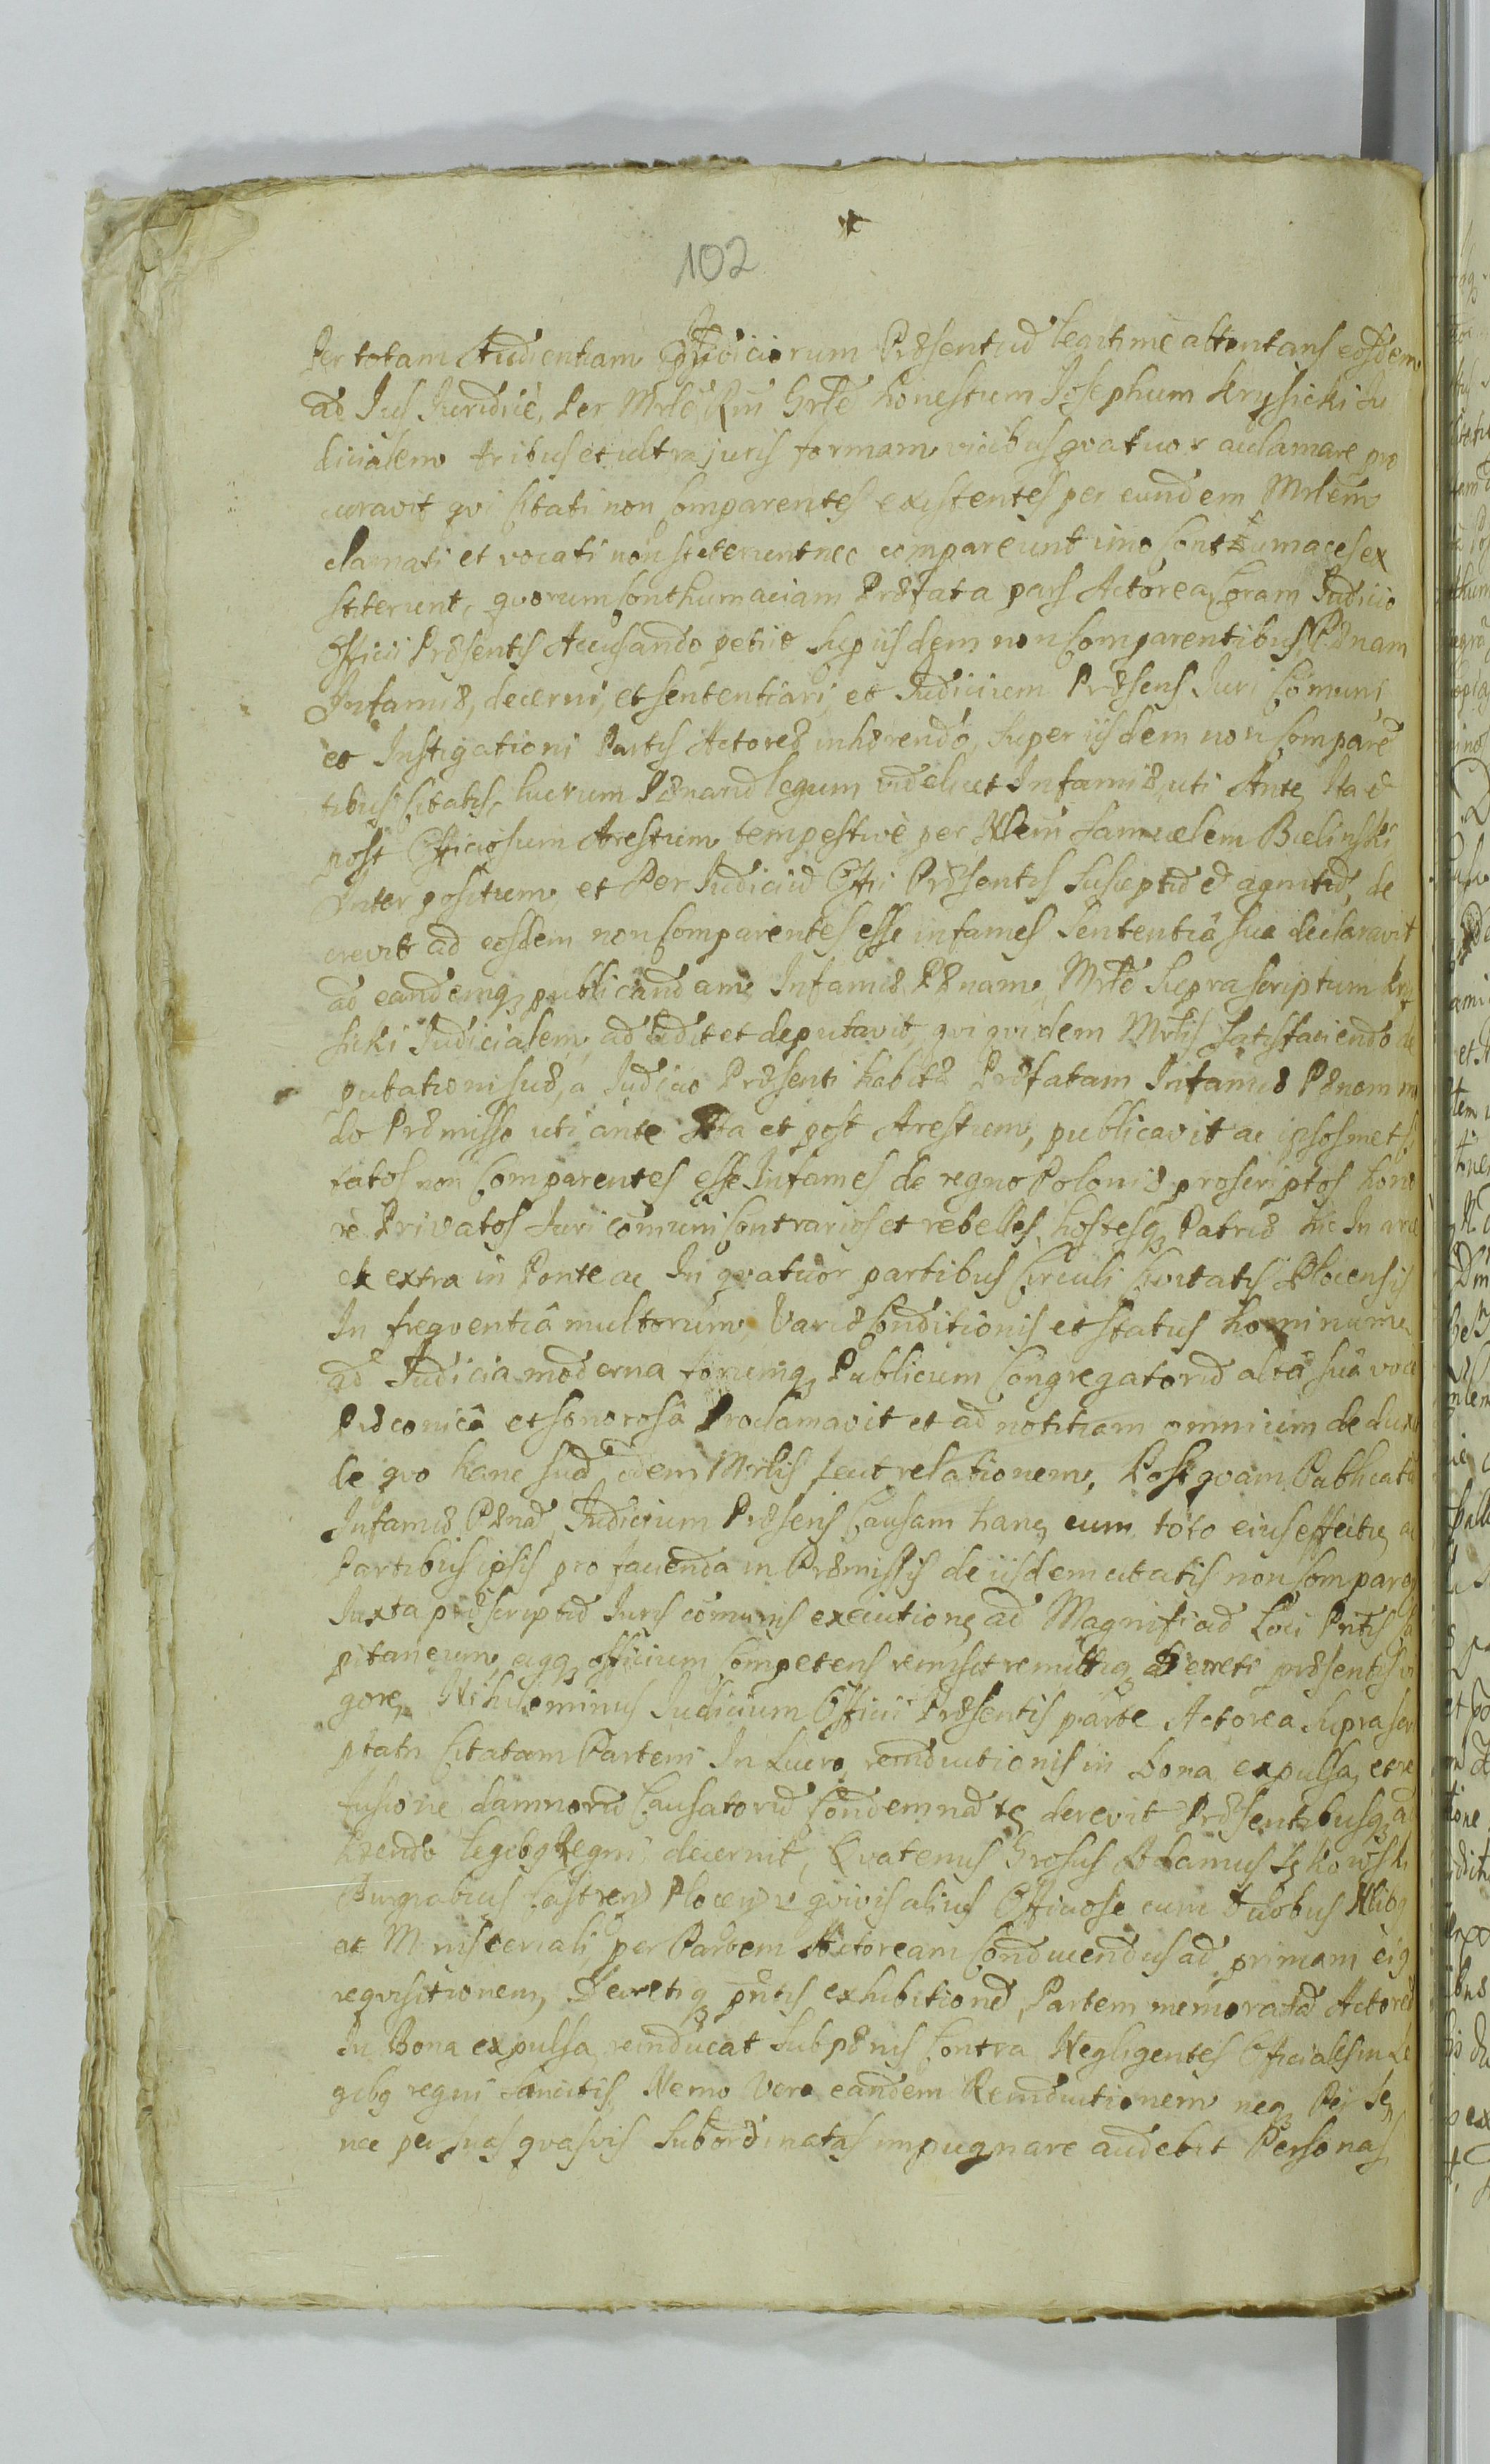 102
Per totam Audientiam Judiciorum Præsentiũ legitimè attentans eosdem
ad Jus Juridicè, Per Mrlẽ Rñi Grlẽ honestum Josephum Krysicki Ju
dicialem tribus et ultra juris formam vicibus qvatuor acclamare pro
curavit qvi Citati non Comparentes existentes per eundem Mrlem
clamati et vocati non steterunt nec comparerunt imo Contumaces ex
stiterunt, qvorum Conthumaciam Præfata pars Actorea Coram Judicio
Officii Præsentis Accusando petiit Sup iisdem non Comparentibus Pænam
Infamiæ, decerni, et sententiari, et Judicium Præsens Juri Cõmuni
et Instigationi Partis Actoreæ inhærendo, Super iisdem non Comparẽ
tibus Citatis, lucrum Pænarũ legum videlicet Infamiæ, uti Ante Ita &
post Officiosum Arestum tempestivè per Nlem Samuelem Bielinski
Interpositum, et Per Judiciũ Offii Præsentis Susceptũ & agnitũ, de
crevit ad eosdem non Comparentes esse infames Sententiâ suâ declaravit
ad eandemq3 publicandam Infamiæ Pænam, Mrlẽ Suprascriptum Kry
sicki Judicialem, addidit et deputavit, qvi qvidem Mrlis Satisfaciendo de
putationi suæ, a Judicio Præsenti habitæ Præfatam Infamiæ Pænam mo
do Præmisso uti ante Ita et post Arestum, publicavit ac ipsosmet Ci
tatos non Comparentes esse Infames de regno Poloniæ proscriptos hono
re Privatos Juri Cõmuni Contrarios et rebelles, hostesq3 Patriæ hic In arce
et extra in Ponte ac In qvatuor partibus Circuli Civitatis Plocensis
In freqventiâ multorum, Variæ Conditionis et status hominum
ad Judicia moderna forumq3 Publicum Congregatorũ altâ suâ voce
Præconicâ et sonorosâ Proclamavit et ad notitiam omnium deduxit
de qvo hanc suã idem Mrlis fecit relationem, Post qvam Publicatã
Infamiæ Pænã, Judicium Præsens Causam hanc, cum toto eius effectu, ac
Partibus ipsis pro facienda in Præmissis de iisdem citatis non Comparen
Juxta præscriptũ Juris cõmunis executione, ad Magnificũ Loci Pntis Ca
pitaneum, eiqq3 officium Competens remisit remittitq3 Decreti præsentis vi
gore, Nihilominus Judicium Officii Præsentis parte Actorea Suprascri
ptam Citatam Partem In Lucro, reinductionis in bona expulsa, et re
fusione damnorũ Causatorũ Condemnãte, decrevit Præsentibusq3 ad
hærendo legibq Regni decernit, Qvatenus Grosus Adamus
Burgrabius Castren Plocen vel qvivis alius Officiose cum duobus Nlibq
et Ministeriali, per Partem Actoream Conducendus ad primam eiq
reqvisitionem, Decretiq3 pntis exhibitionẽ, Partem memoratã Actoreã
In Bona expulsa reinducat Sub pænis Contra Negligentes Officiales in Le
gibq regni sancitis, Nemo Vero eandem Reinductionem neq3 Per Se
nec per suas qvasvis Subordinatas impugnare audebit Personas